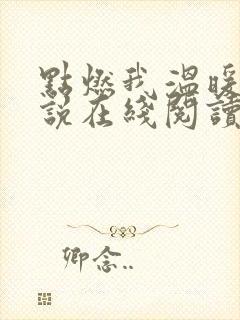 點燃我 溫暖
說在綫閱讀
卿念..